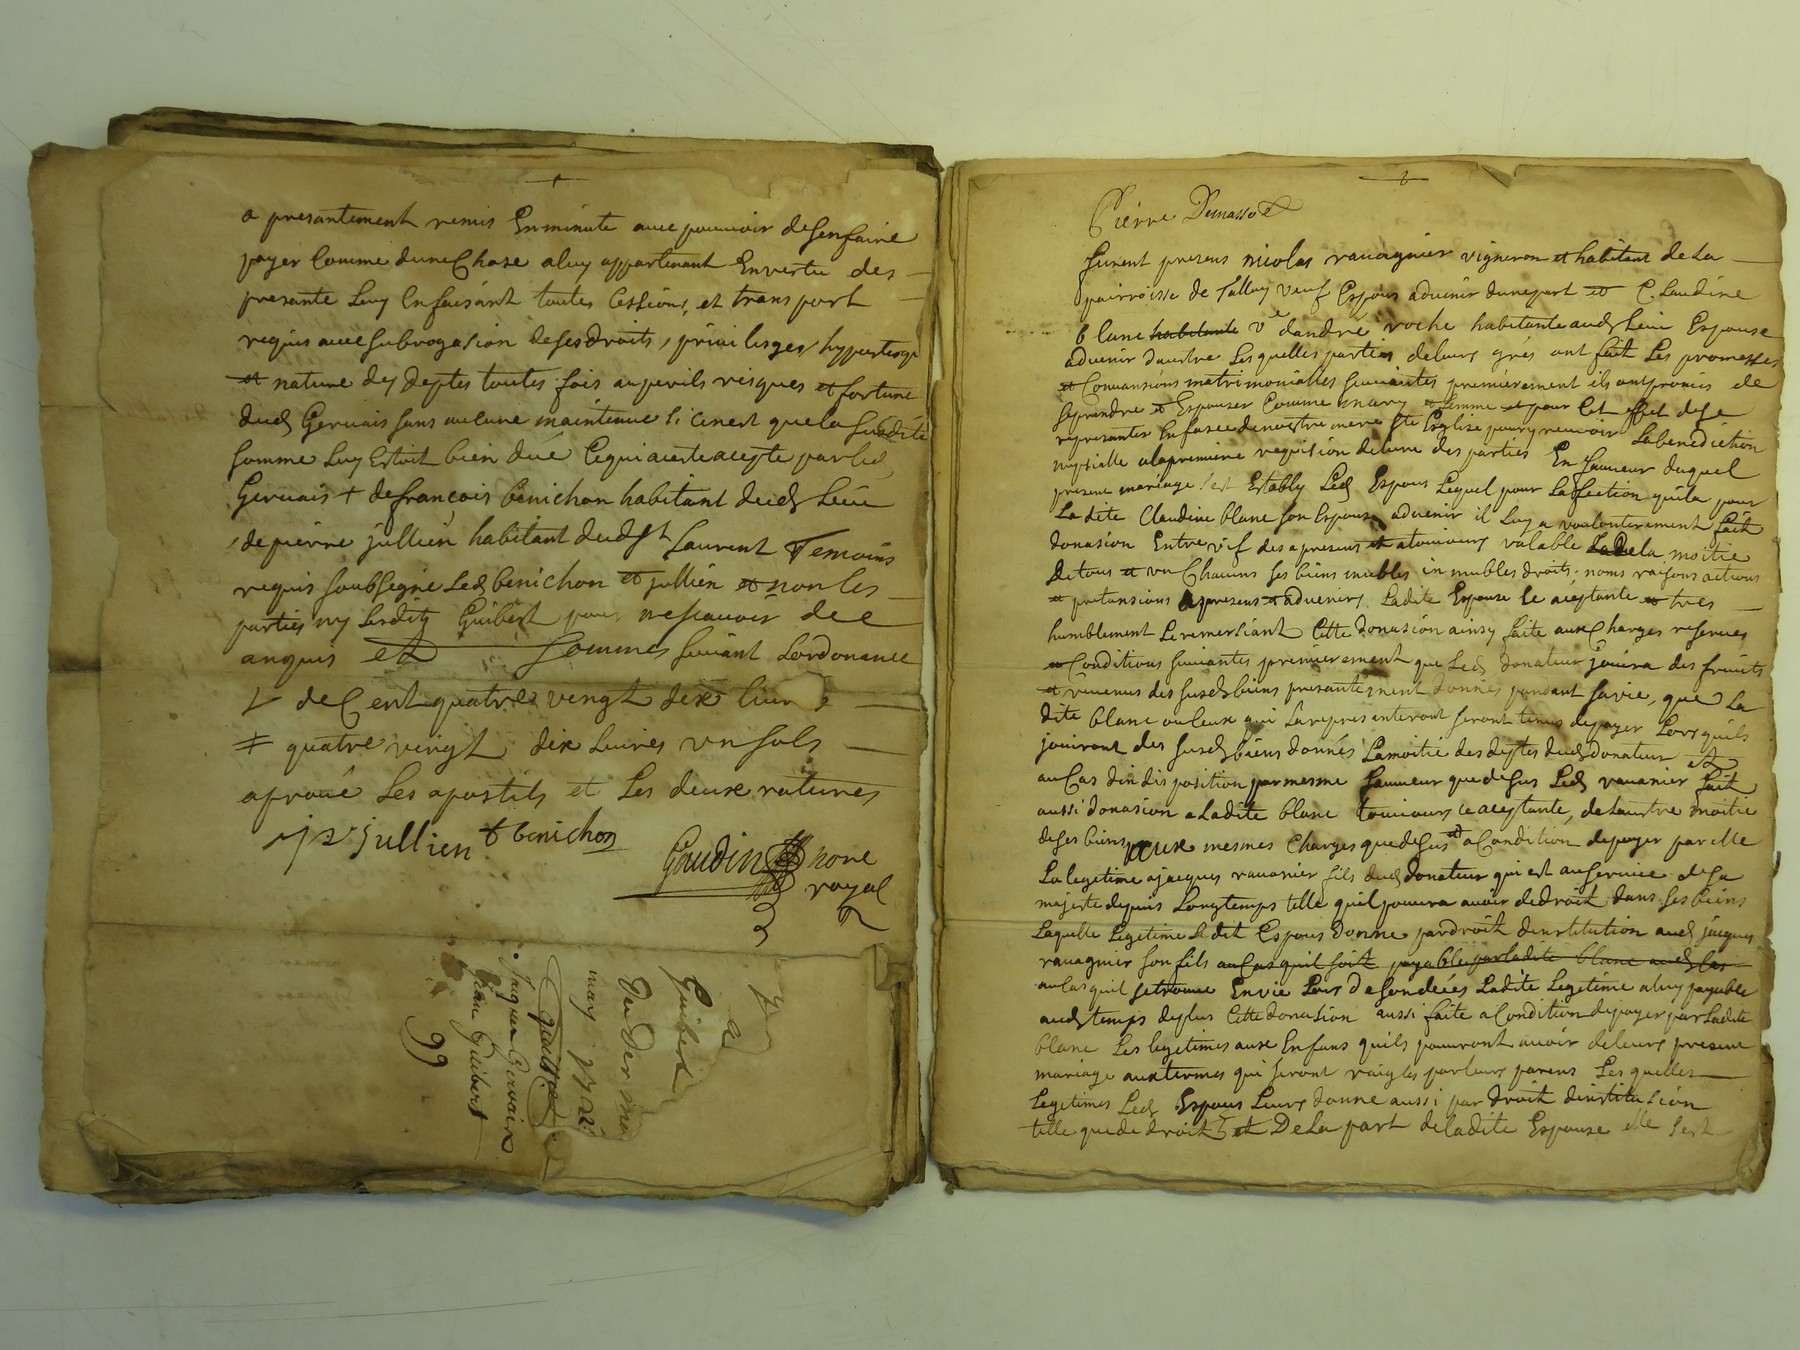 a presantement remis En minute avec pouvoir de sen faire
payer Comme dune Chose a luy appartenant En vertu des
presante Luy En faisant toutes Cessions, et transport
requis avec subrogasion de ses droits, privileges, hypoteque
et nature des deptes toutes fois au perils risques et fortune
dud Gervais sans aucune maintenue si cenest que la susdite
somme Luy Estoit bien düe Ce qui a este acepte par led
Gervais + de françois benichon habitant dud Lieu
de pierre jullien habitant dud st Laurent Temoins
requis soubsigné Led benichon et jullien et non les
parties ny lesdits Guibert pour ne scavoir de ce
enquis et sommes suivant Lordonance
de Cent quatre vingt dix livres
≠ quatre vingt dix Livres un sols
aprouvé Les apostils et Les deux ratures
j p jullien f benichon
Gaudin nore
royal
Guibert
Du Dernier
may 1702
quittance
Jaques Gervaix
Jean Guibert
99
Pierre Demasso
furent presens nicolas ravagnier vigneron et habitant de La
pairroisse de Talluy veuf Espous advenir dune part et Claudine
blanc habitante ve dandré roche habitante aud Lieu Espouse
advenir dautre Lesquelles parties de leurs grés ont fait Les promesses
et Convansions matrimonialles suivantes premierement ils ont promis de
se prendre et Espouser Comme mary et femme et pour Cet effet de se
representer En fasce de nostre mere ste Esglise pour y recevoir La benediction
nupsialle a la premiere requision de lune des parties En faveur duquel
present mariage sest Estably Led Espous Lequel pour Lafection quila pour
La dite Claudine blanc son Espouse advenir il Luy a voulonterement fait
donasion Entre vif des a presens et a tousiours valable La de la moitie
De tous et un Chacuns ses biens meubles inmeubles droits noms raisons actions
et pretansions a presens et advenirs Ladite Espouse Le aceptante et tres
humblement Le remersiant Cette donasion ainsy faite aux Charges reserves
et Conditions suivantes premierement que Led donateur jouira des fruits
et revenus des susd biens presantement donnés pandant sa vie, que La
dite blanc ou Ceux qui La representeront seront tenus de payer Lors quils
jouiront des susd biens donnés La moitie des deptes dud donateur et
au Cas dindisposition par mesme faveur que desus Led ravanier fait
aussi donasion a Ladite blanc tousiours ce aceptante, de Lautre moitie
de ses biens aux mesmes Charges que desus et a Condition de payer par elle
La legitime a jacques ravanier fils dud donateur qui est au service de sa
majesté depuis Longtemps telle quil pourra avoir de droit dans ses biens
Laquelle Legitime Le dit Espous donne par droit dinstitution aud jacques
ravagnier son fils au Cas quil soit payable par ladite blanc aud Cas
au Cas quil se trouve En vie Lors De son decés Ladite Legitime a luy payable
aud temps de plus Cette donasion aussi faite a Condition de payer par Ladite
blanc Les legitimes aux Enfans quils pourront avoir de leurs present
mariage aux termes qui seront raiglés par leurs parens Les quelles
Legitimes Led Espous Leurs donne aussi par droit dinstitusion
telle que de droit, et De La part de Ladite Espouse elle sest